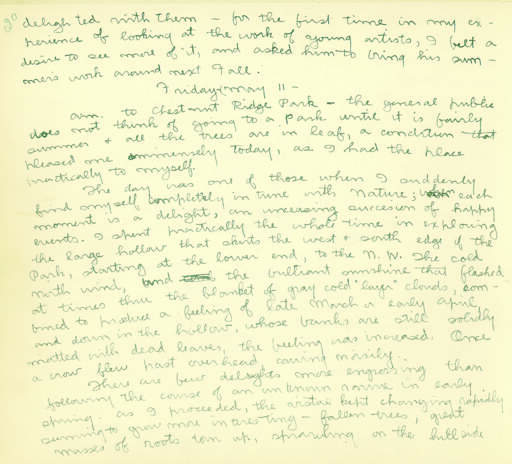 20
delighted with them - for the first time in my ex-
perience of looking at the work of young artists, I felt a
desire to see more of it, and asked him to bring his sum-
mers work around next Fall.
Friday May 11 -
a.m. to Chestnut Ridge Park - the general public
does not think of going to a park until it is fairly
summer + all the trees are in leaf, a condition that
pleased me immensely today, as I had the place
practically to myself.
The day was one of those when I suddenly
found myself completely in tune with Nature; each
moment is a delight, an unceasing succession of happy
events. I spent practically the whole time in exploring
the large hollow that skirts the west + south edge of the
Park, starting at the lower end, to the N.W. The cold
north wind, and the brilliant sunshine that flashed
at times thru the blanket of gray cold "layer" clouds, com-
bined to produce a feeling of late March or early April,
and down in the hollow, whose banks are still solidly
matted with dead leaves, the feeling was increased. Once
a crow flew past overhead, cawing noisily.
There are few delights more engrossing than
following the course of an unknown ravine in early
spring. As I proceeded, the vistas kept changing rapidly
seeming to grow more interesting - fallen trees, great
masses of roots torn up, sprawling on the hillside